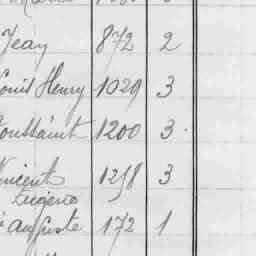 Jean 872 2
Louis Henry 1029 3
Toussaint 1200 3.
Vincent 1258 3
Eugène
Auguste 172 1